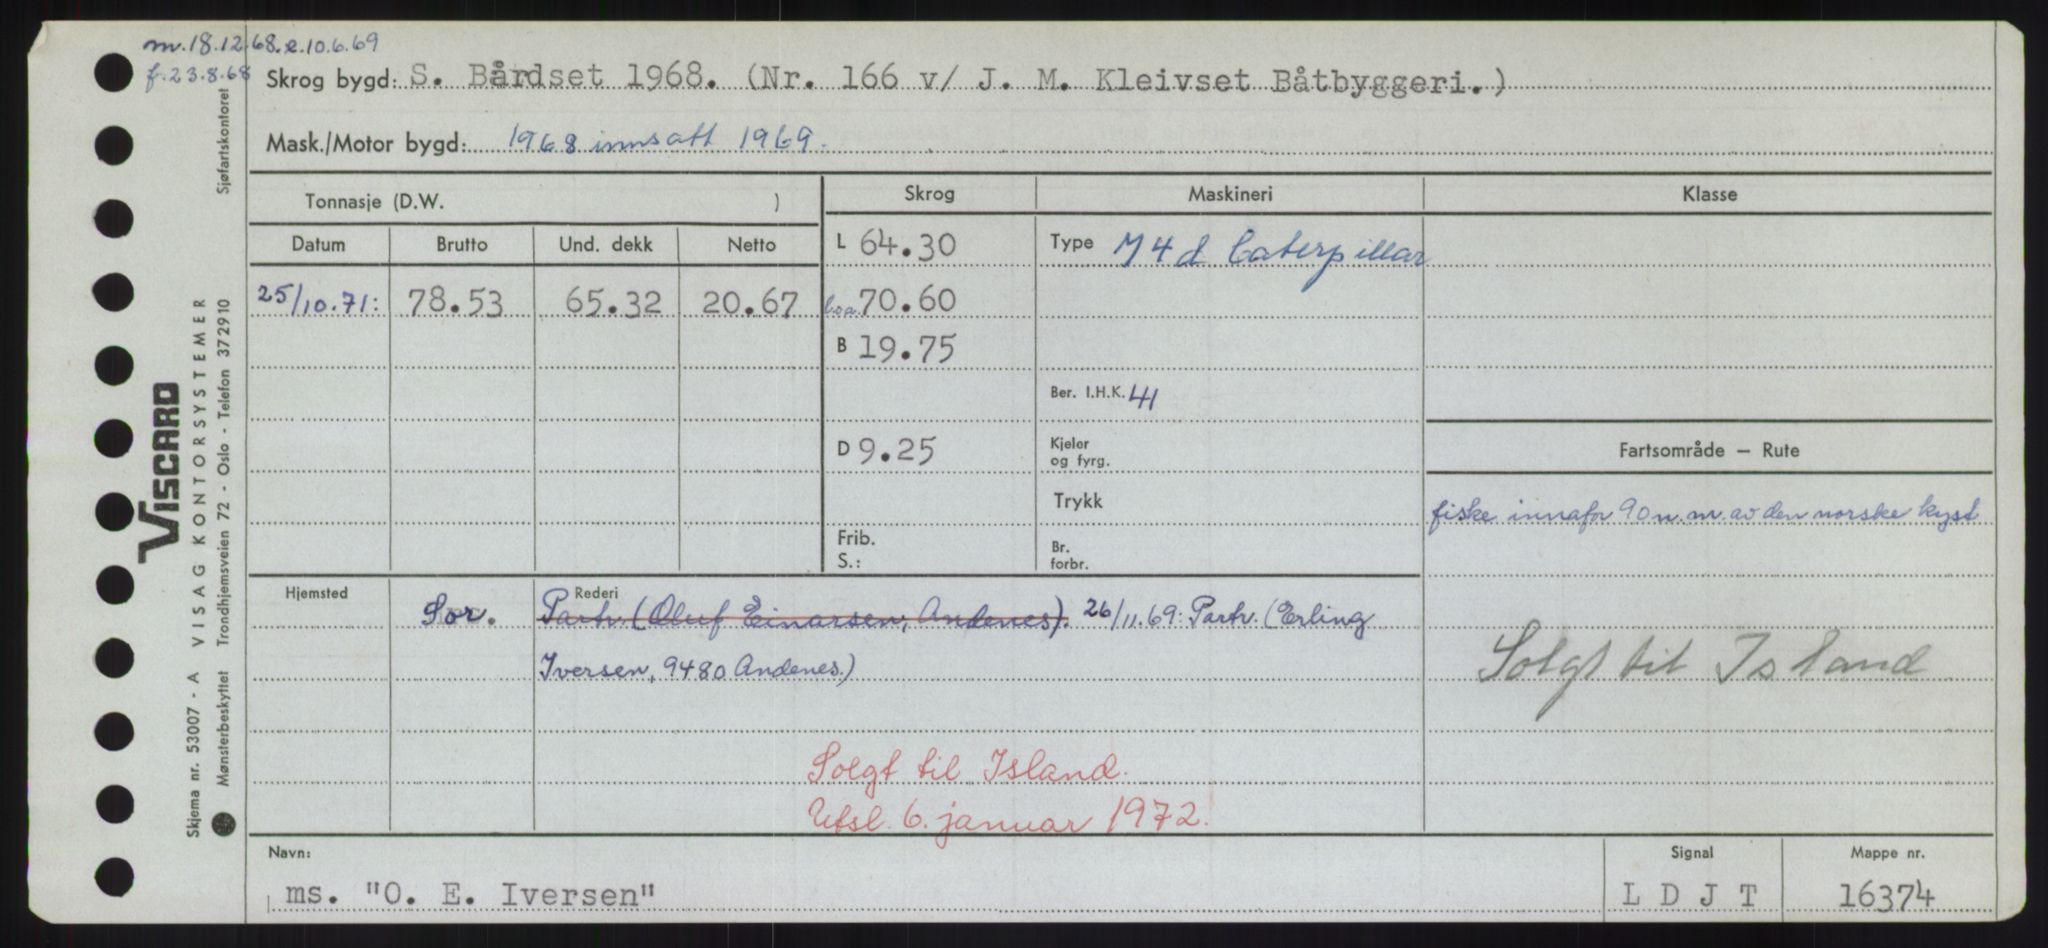 m.18.12.68.e.10.6.69
f.23.8.68
Skrog bygd: S. Bårdset 1968. (Nr. 166 v/ J. M. Kleivset Båtbyggeri.)
Mask./Motor bygd: 1968 innsatt 1969.
Tonnasje (D.W. )
Skrog
Maskineri
Klasse
Datum Brutto Und. dekk Netto
L 64.30
Type M4d Caterpillar
25/10.71: 78.53 65.32 20.67
l.o.a. 70.60
B 19.75
Ber. I.H.K. 41
D 9.25
Kjeler
og fyrg.
Fartsområde — Rute
Trykk
fiske innafor 90 n.m. av den norske kyst
Frib.
S.:
Br.
forbr.
Hjemsted
Rederi
Sor. Partr. (Oluf Einarsen, Andenes). 26/11.69: Partr. (Erling
Iversen, 9480 Andenes.)
Solgt til Island
Solgt til Island.
Utsl. 6. januar 1972.
Navn:
Signal
Mappe nr.
ms. "O. E. Iversen"
L D J T
16374
Sjøfartskontoret
VISCARD
VISAG KONTORSYSTEMER
Trondhjemsveien 72 - Oslo - Telefon 372910
Skjema nr. 53007 - A
Mønsterbeskyttet